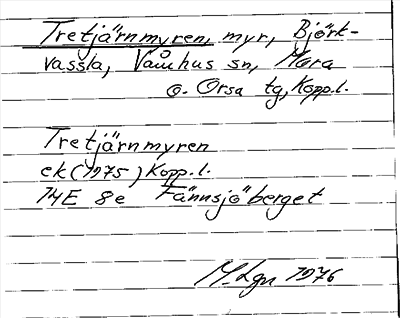 Tretjärnmyren, myr, Björk-
vassla, Våmhus sn, Mora
o. Orsa tg, Kopp.l.
Tretjärnmyren
ek (1975) Kopp.l.
14E 8e Fännsjöberget
M. Lgn 1976